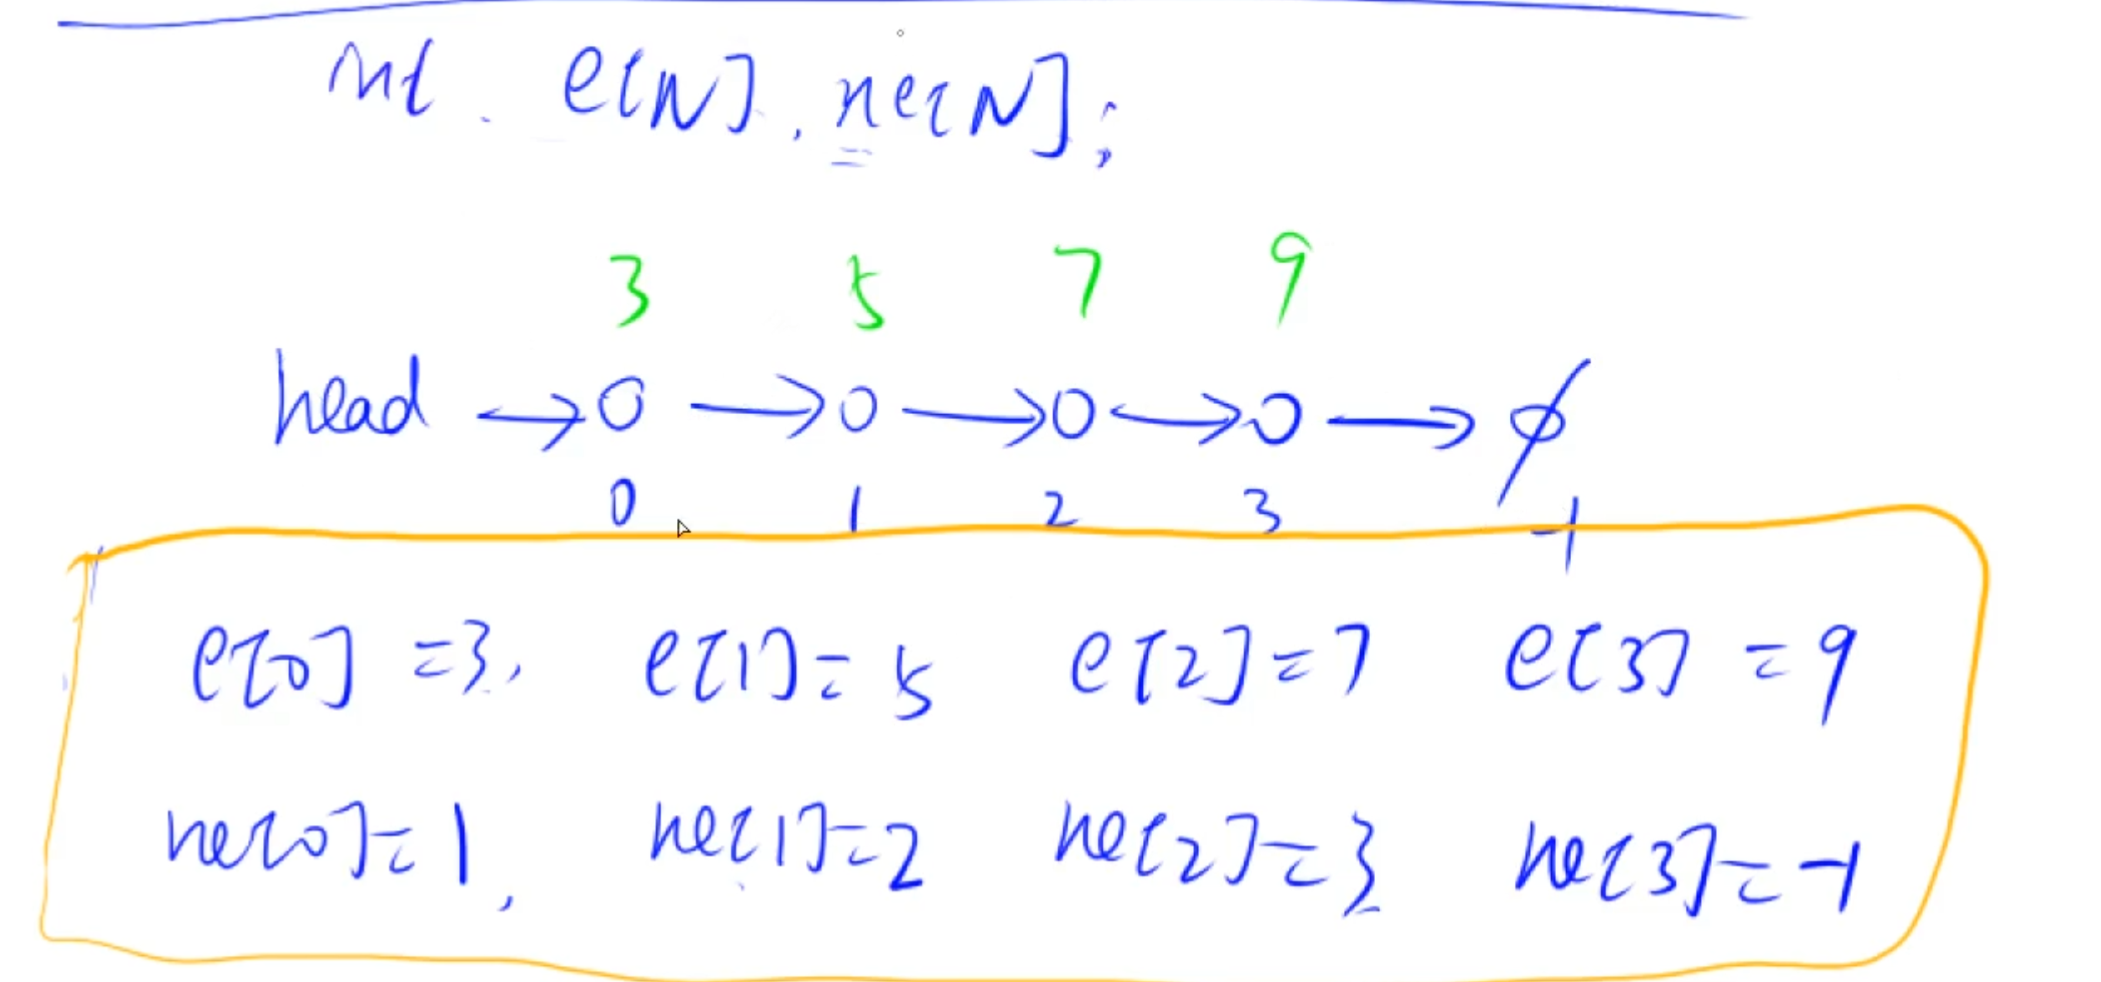 int e[N], ne[N];
3 5 7 9
head → O → O → O → O → ∅
0 1 2 3 -1
e[0] = 3, e[1] = 5 e[2] = 7 e[3] = 9
ne[0] = 1, ne[1] = 2 ne[2] = 3 ne[3] = -1